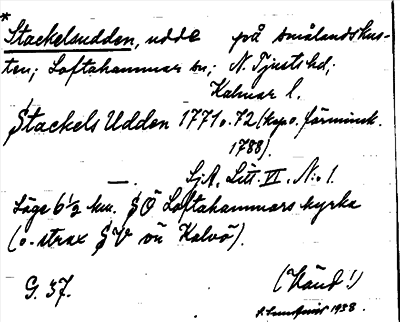 *
Stackelsudden, udde på smålandskus-
ten; Loftahammar sn; N. Tjusts hd;
Kalmar l.
Stackels Udden 1771 o. 72 (kop. o. förminsk.
1788).
—. SjA, Litt. VI. N:o 1.
Läge 6 1/2 km. SÖ Loftahammars kyrka
(o. strax SV om Kalvö).
G. 37. (Känd!)
1938.